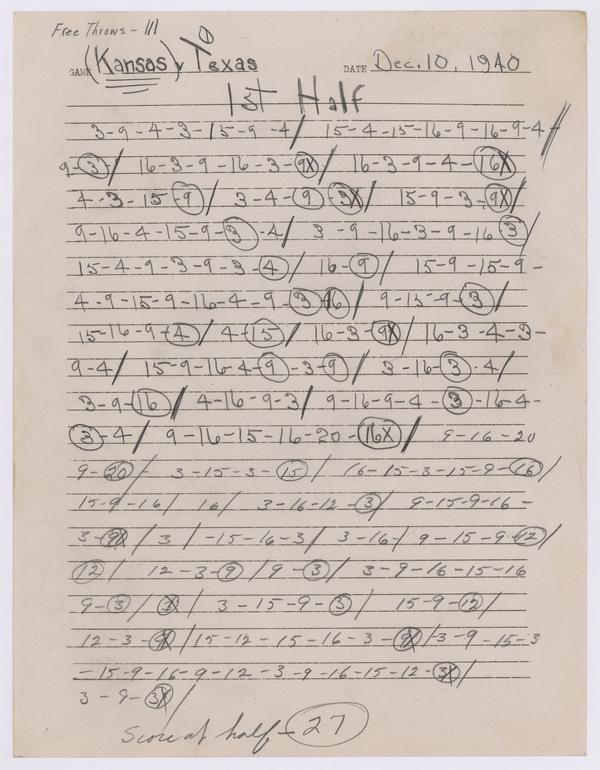 Free Throws - III
GAME (Kansas) v Texas DATE Dec. 10, 1940
1st Half
3-9-4-3-15-9-4/ 15-4-15-16-9-16-9-4-/
9-(3)/ 16-3-9-16-3-(9X)/ 16-3-9-4-(16X)
4-3-15-(9)/ 3-4-(9)-(3X)/ 15-9-3-(9X)/
9-16-4-15-9-(3)-4/ 3-9-16-3-9-16(3)/
15-4-9-3-9-3-(4)/ 16-(9)/ 15-9-15-9-
4-9-15-9-16-4-9-(3)-(16)/ 9-15-9-(3)/
15-16-9-(4)/ 4-(15)/ 16-3-(9X)/ 16-3-4-3-
9-4/ 15-9-16-4-(9)-3-(9)/ 3-16-(3)-4/
3-9-(16)/ 4-16-9-3/ 9-16-9-4-(3)-16-4-
(3)-4/ 9-16-15-16-20-(16X)/ 9-16-20
9-(20)/- 3-15-3-(15)/ 16-15-3-15-9-(16)/
15-9-16/ 16/ 3-16-12-(3)/ 9-15-9-16-
3-(9X)/3/-15-16-3/ 3-16-/ 9-15-9-(12)/
(12)/ 12-3-(9)/9-(3)/ 3-9-16-15-16
9-(3)/(X)/ 3-15-9-(3)/ 15-9-(12)/
12-3-(9X)/15-12-15-16-3-(9X)/-3-9-15-3
-15-9-16-9-12-3-9-16-15-12-(3X)/
3-9-(3X)/
Score at half-(27)